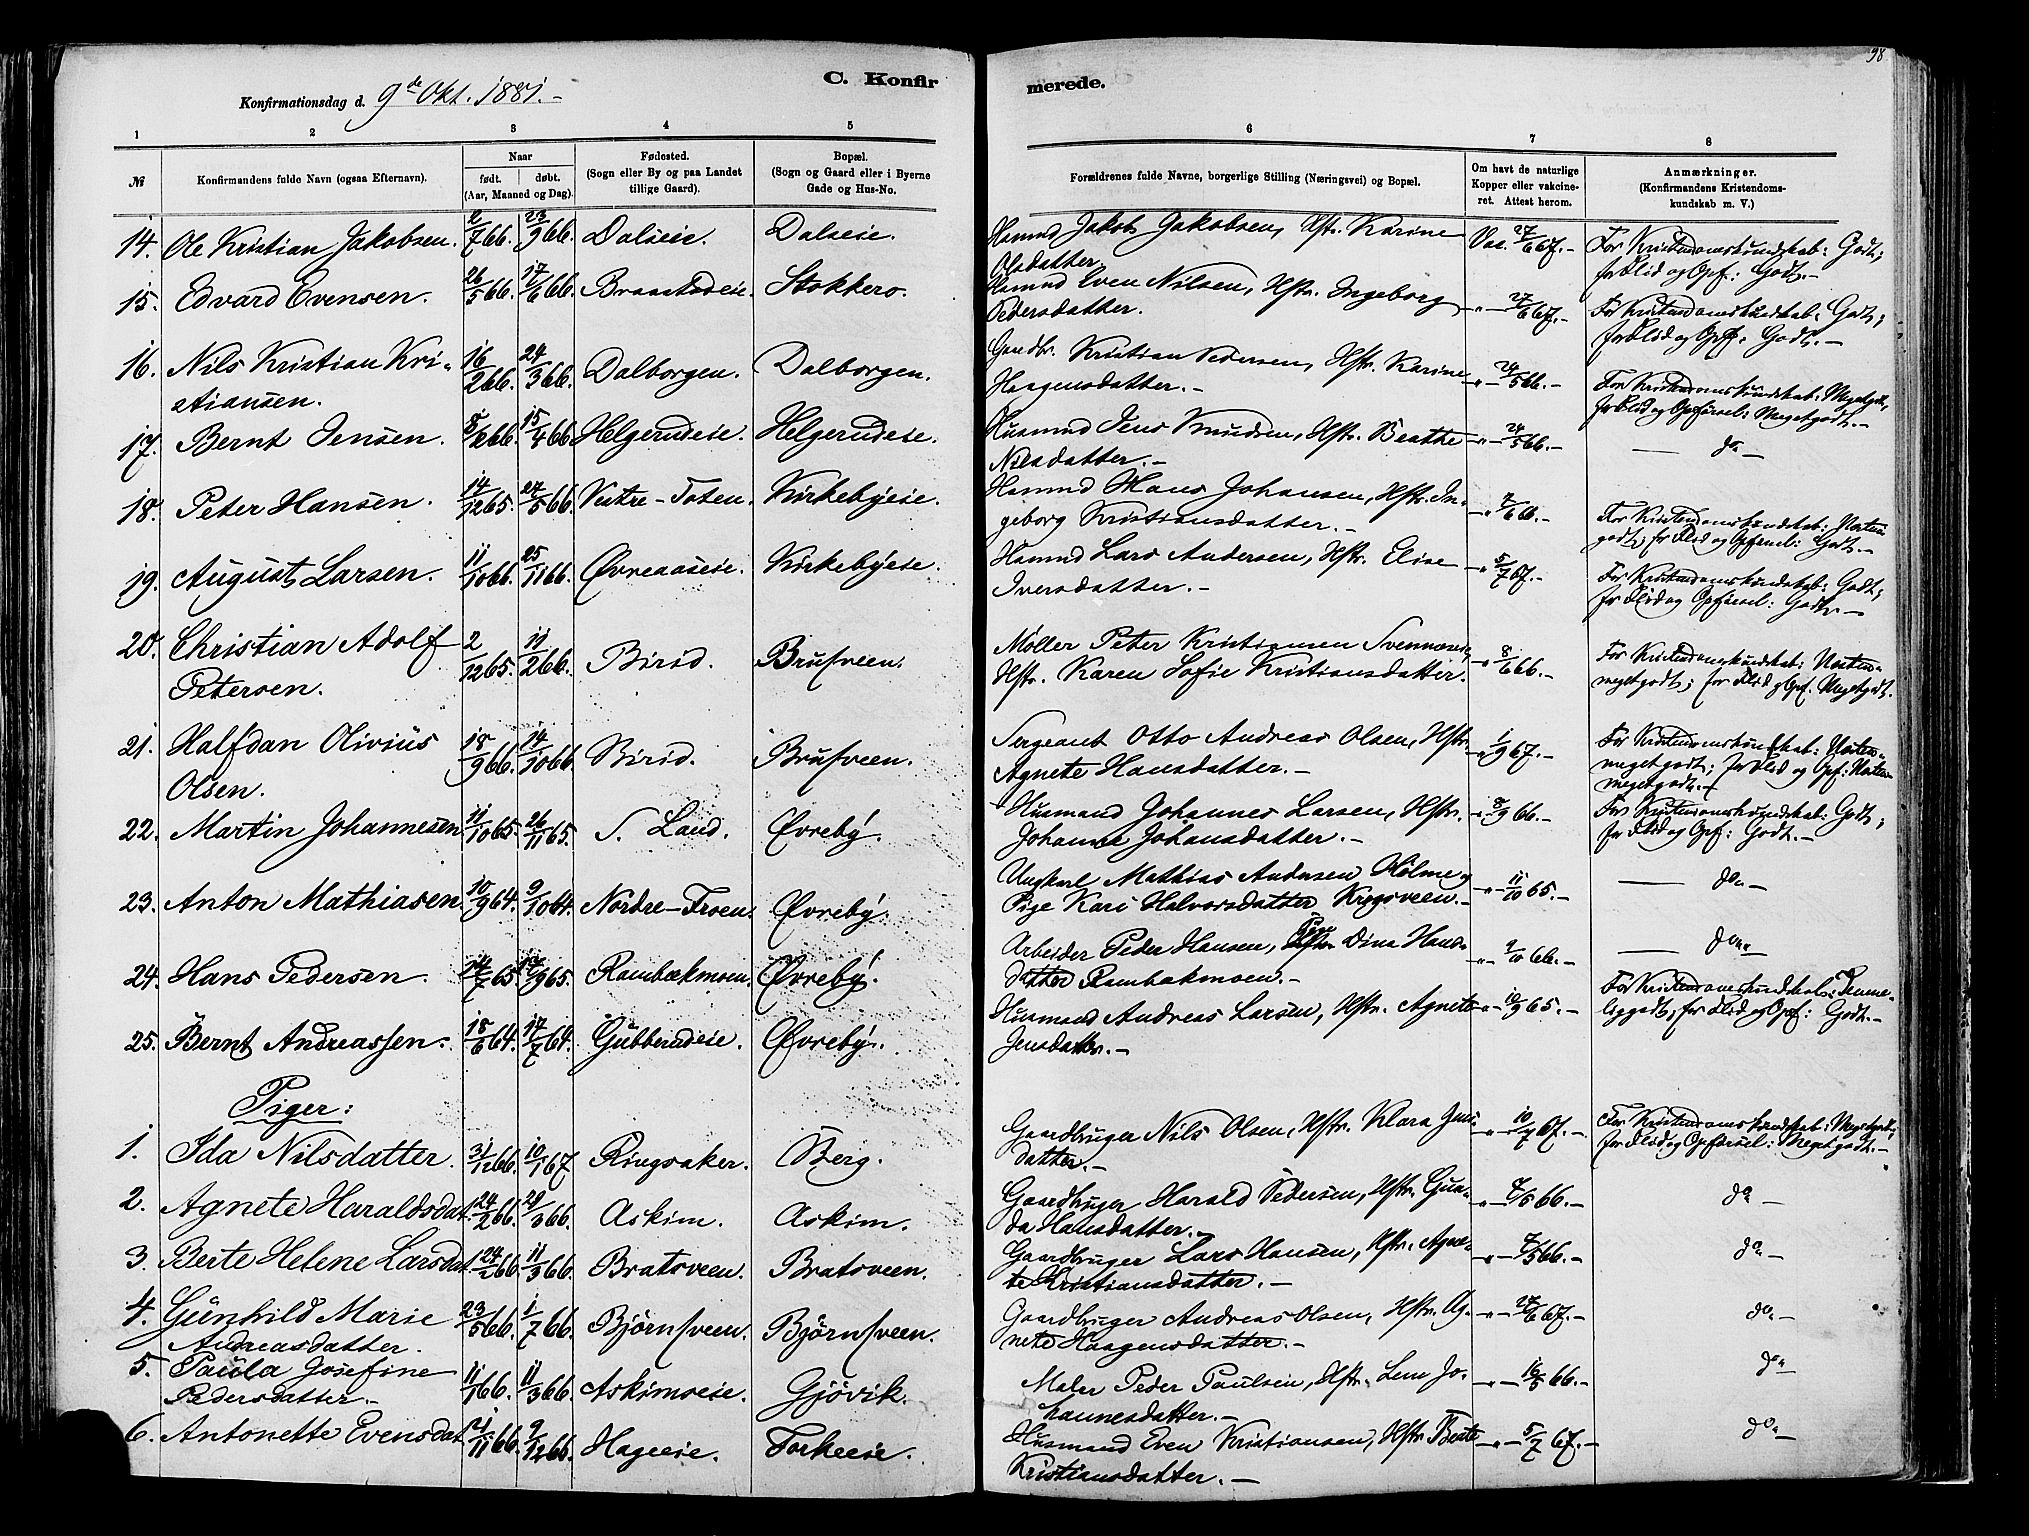 98
C. Konfir
merede.
Konfirmationsdag d. 9de Okt. 1881.-
1 2 3 4 5 6 7 8
№
Konfirmandens fulde Navn (ogsaa Efternavn).
Naar
født. døbt.
(Aar, Maaned og Dag).
Fødested.
(Sogn eller By og paa Landet
tillige Gaard).
Bopæl.
(Sogn og Gaard eller i Byerne
Gade og Hus-No.
Forældrenes fulde Navne, borgerlige Stilling (Næringsvei) og Bopæl.
Om havt de naturlige
Kopper eller vakcine-
ret. Attest herom.
Anmærkninger.
(Konfirmandens Kristendoms-
kundskab m. V.)
14. Ole Kristian Jakobsen. 2/7 66. 23/9 66. Dalseie. Dalseie. Jakob Jakobsen, Hstr. Karine Vac. 27/6 67.- For Kristendomskundskab: Godt;
Olsdatter. for Flid og Opf.: Godt.-
15. Edvard Evensen. 26/5 66. 17/6 66. Stokkero. Even Nilsen, Hstr. Ingeborg -"- 27/6 67.- For Kristendomskundskab: Godt;
Pedersdatter. for Flid og Opf.: Godt.-
16. Nils Kristian Kri- 16/2 66. 24/3 66. Dalborgen. Dalborgen. Gaardbr. Kristian Pedersen, Hstr. Karine -"- 29/5 66.- For Kristendomskundskab: Megetgodt,
stiansen. Haagensdatter.- for Flid og Opførsel: Megetgodt.-
17. Bernt Jensen. 15/4 66. Helgerudeie. Helgerudeie. Husmnd Jens Knudsen, Hstr. Beathe -"- 24/5 66.- — do —
Nilsdatter.-
18. Peter Hansen. 14/12 65. 27/5 66. Vestre-Toten. Kirkebyeie. Hans Johansen, Hstr. In- -"- For Kristendomskundskab: Næsten
geborg Kristiansdatter.- godt; for Flid og Opførsel: Godt.-
19. August Larsen. 11/10 66. 25/11 66. Øvreaaseie. Kirkebyeie. Lars Andersen, Hstr. Elise -"- 5/7 67.- For Kristendomskundskab: Godt;
Iversdatter.- for Flid og Opførsel: Godt.-
20. Christian Adolf 2/12 65. 11/2 66. Birid. Brusveen. Møller Peter Kristiansen -"- 8/6 66.- For Kristendomskundskab: Næsten
Petersen. Hstr. Karen Sofie Kristiansdatter. megetgodt; for Flid og Opf. Megetgodt.
21. Halfdan Olivius 18/9 66. 14/10 66. Birid. Brusveen. Sergeant Otto Andreas Olsen, Hstr. -"- 1/9 67.- For Kristendomskundskab: Næsten
Olsen. Agnete Hansdatter.- megetgodt; for Flid og Opf: Næsten
megetgodt.-
22. Martin Johannesen 11/10 65. 26/11 65. S. Land. Øvreby. Husmand Johannes Larsen, Hstr. -"- 8/9 66.- For Kristendomskundskab: Godt;
Johanne Johansdatter.- for Flid og Opf: Godt.-
23. Anton Mathiasen 10/9 64. 9/10 64. Nordre-Froen. Øvreby. Ungkarl Mathias Andersen Holme og -"- 11/10 65.- — do. —
Pige Kari Halvorsdatter Krogsveen.-
24. Hans Pedersen. 14/7 65. 17/9 65. Rambækmoen. Øvreby. Arbeider Peder Hansen, Pige Dina Hans- -"- 9/10 66.- — do. —
datter Rambækmoen.-
25. Bernt Andreassen. 18/6 64. 17/7 64. Gubberudeie. Øvreby. Husmand Andreas Larsen, Hstr. Agnete -"- 10/9 65.- For Kristendomskundskab: Temme-
Jensdatter.- liggodt; for Flid og Opf: Godt.-
Piger:
1. Ida Nilsdatter. 31/12 66. 10/1 67 Ringsaker. Berg. Gaardbruger Nils Olsen, Hstr. Klara Jens- -"- 10/7 67.- For Kristendomskundskab: Megetgodt;
datter.- for Flid og Opførsel: Megetgodt.-
2. Agnete Haraldsdat. 24/2 66. 29/3 66. Askim. Askim. Gaardbruger Harald Pedersen, Hstr. Gun- -"- 66.- do —
da Hansdatter.-
3. Berte Helene Larsdat. 24/2 66. 11/3 66. Bratsveen. Bratsveen. Gaardbruger Lars Hansen, Hstr. Agne- -"- 7/5 66.- do. —
te Kristiansdatter.-
4. Gunhild Marie 23/5 66. 1/7 66. Bjørnsveen. Bjørnsveen. Gaardbruger Andreas Olsen, Hstr. Ag- -"- 27/6 67.- do. —
Andreasdatter. nete Haagensdatter.-
5. Paula Josefine 11/1 66. 11/3 66. Askimseie. Gjövik. Maler Peder Paulsen, Hstr. Jo- -"- 66.- do. —
Pedersdatter.- hannesdatter.-
6. Antonette Evensdat. 21/11 66. 9/12 66. Hageeie. Torkeeie. Husmand Even Kristiansen, Hstr. Beate -"- 5/7 67.- do. —
Kristiansdatter.-